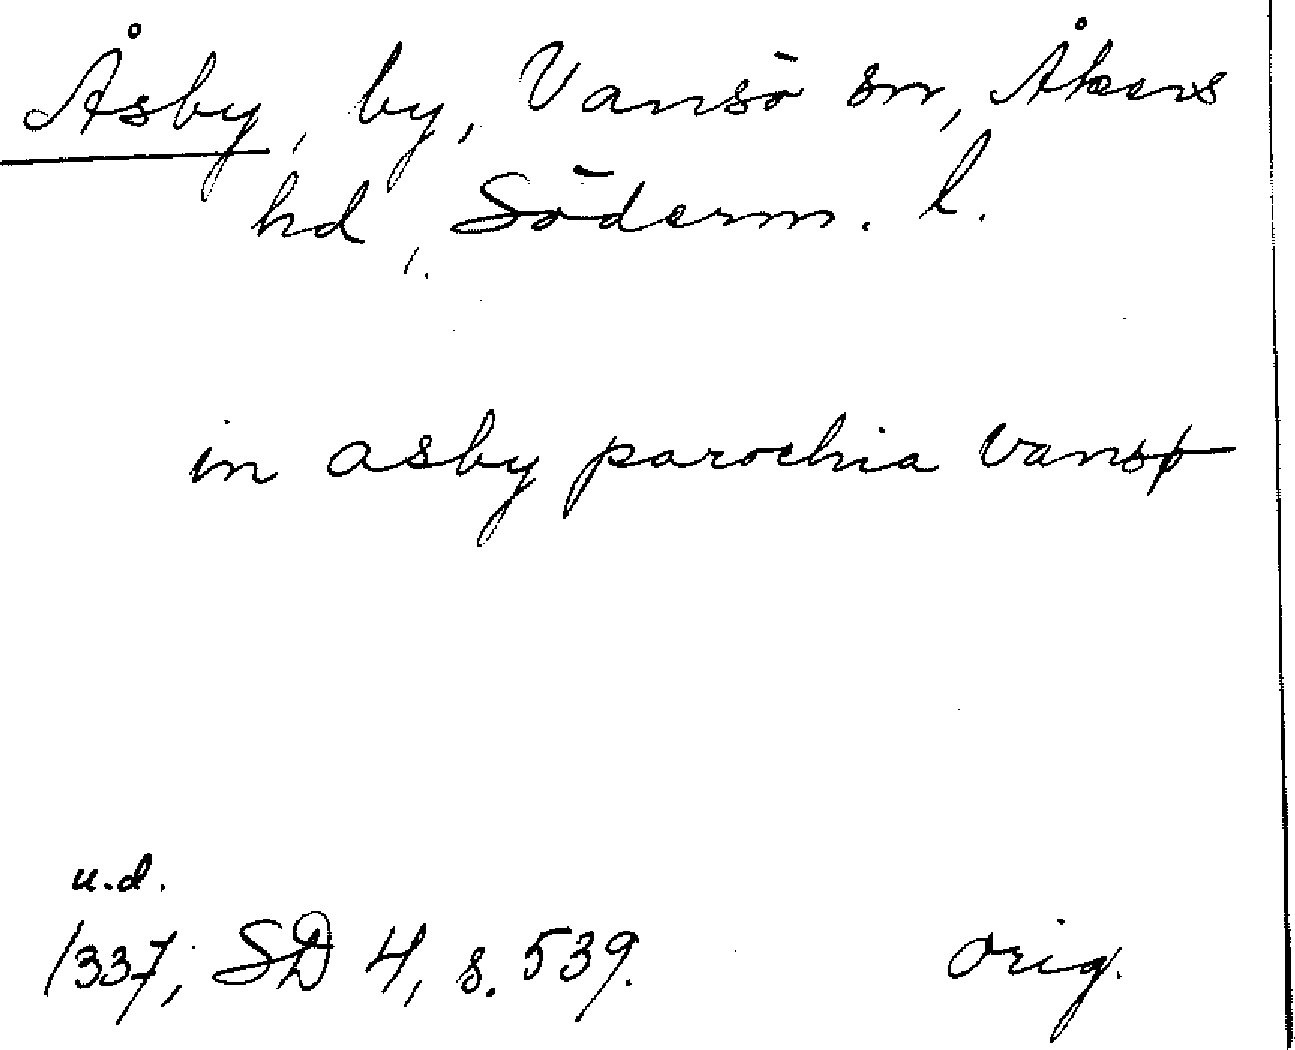 Åsby, by, Vansö sn, Åkers
hd, Söderm. l.
in asby parochia vansø
u.d.
1337, SD 4, s. 539.
orig.